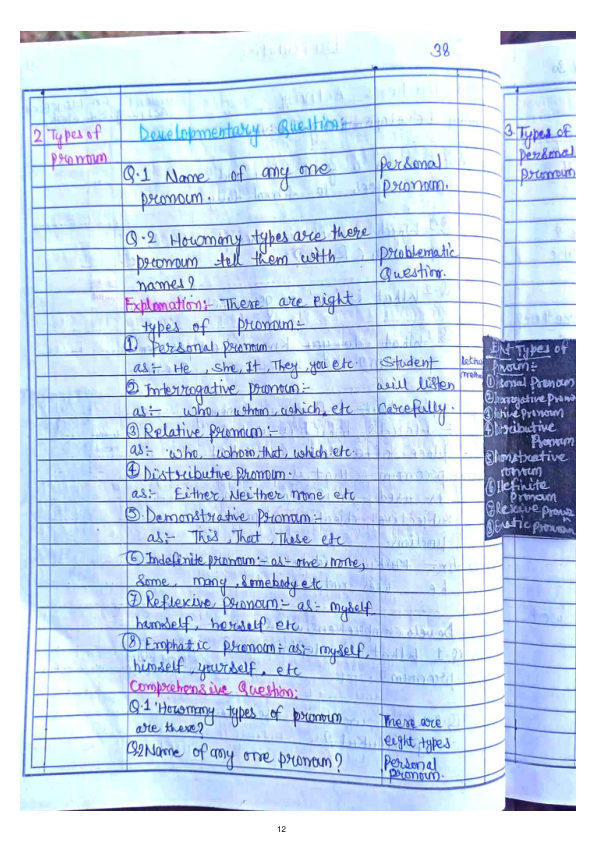 38
2 Types of pronoun
Developmentary Question:-
Q.1 Name of any one
pronoun.
Personal
pronoun.
Q.2 Howmany types are there
pronoun tell them with
names?
problematic
Question.
Explanation:- There are eight
types of pronoun:-
① Personal pronoun
as:- He, she, It, They, you etc
② Interrogative pronoun:-
as:- who, whom, which, etc
Student
will listen
carefully.
③ Relative Pronoun:-
as:- who, whom, that, which etc.
④ Distributive Pronoun.
as:- Either, Neither none etc
⑤ Demonstrative Pronoun:-
as:- This, That, These etc
⑥ Indefinite pronoun:- as- one, none,
Some, many, somebody etc
⑦ Reflexive pronoun:- as:- myself
hamself, herself etc
⑧ Emphatic pronoun:- as:- myself,
himself, yourself, etc
Comprehensive Question:
Q.1 Howmany types of pronoun
are there?
There are
eight types
Q2 Name of any one pronoun?
Personal
pronoun.
3 Types of
personal
pronoun
Types of
① sonal Pronoun
③ ative Pronoun
④ Distributive
Pronoun
⑤ monstrative
ronoun
⑥ definite
Pronoun
12